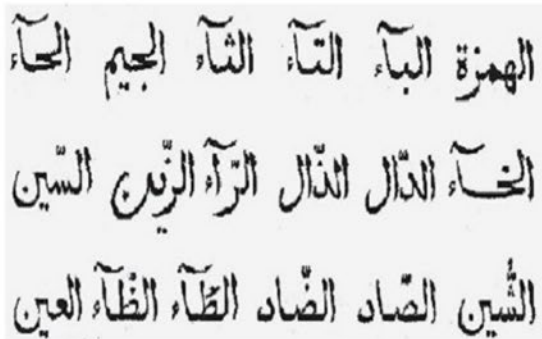 الهمزة البآء التآء الثآء الجيم الحآء
الخآء الدّال الذّال الرّآء الزّين السّين
الشّين الصّاد الضّاد الطّآء الظّآء العين